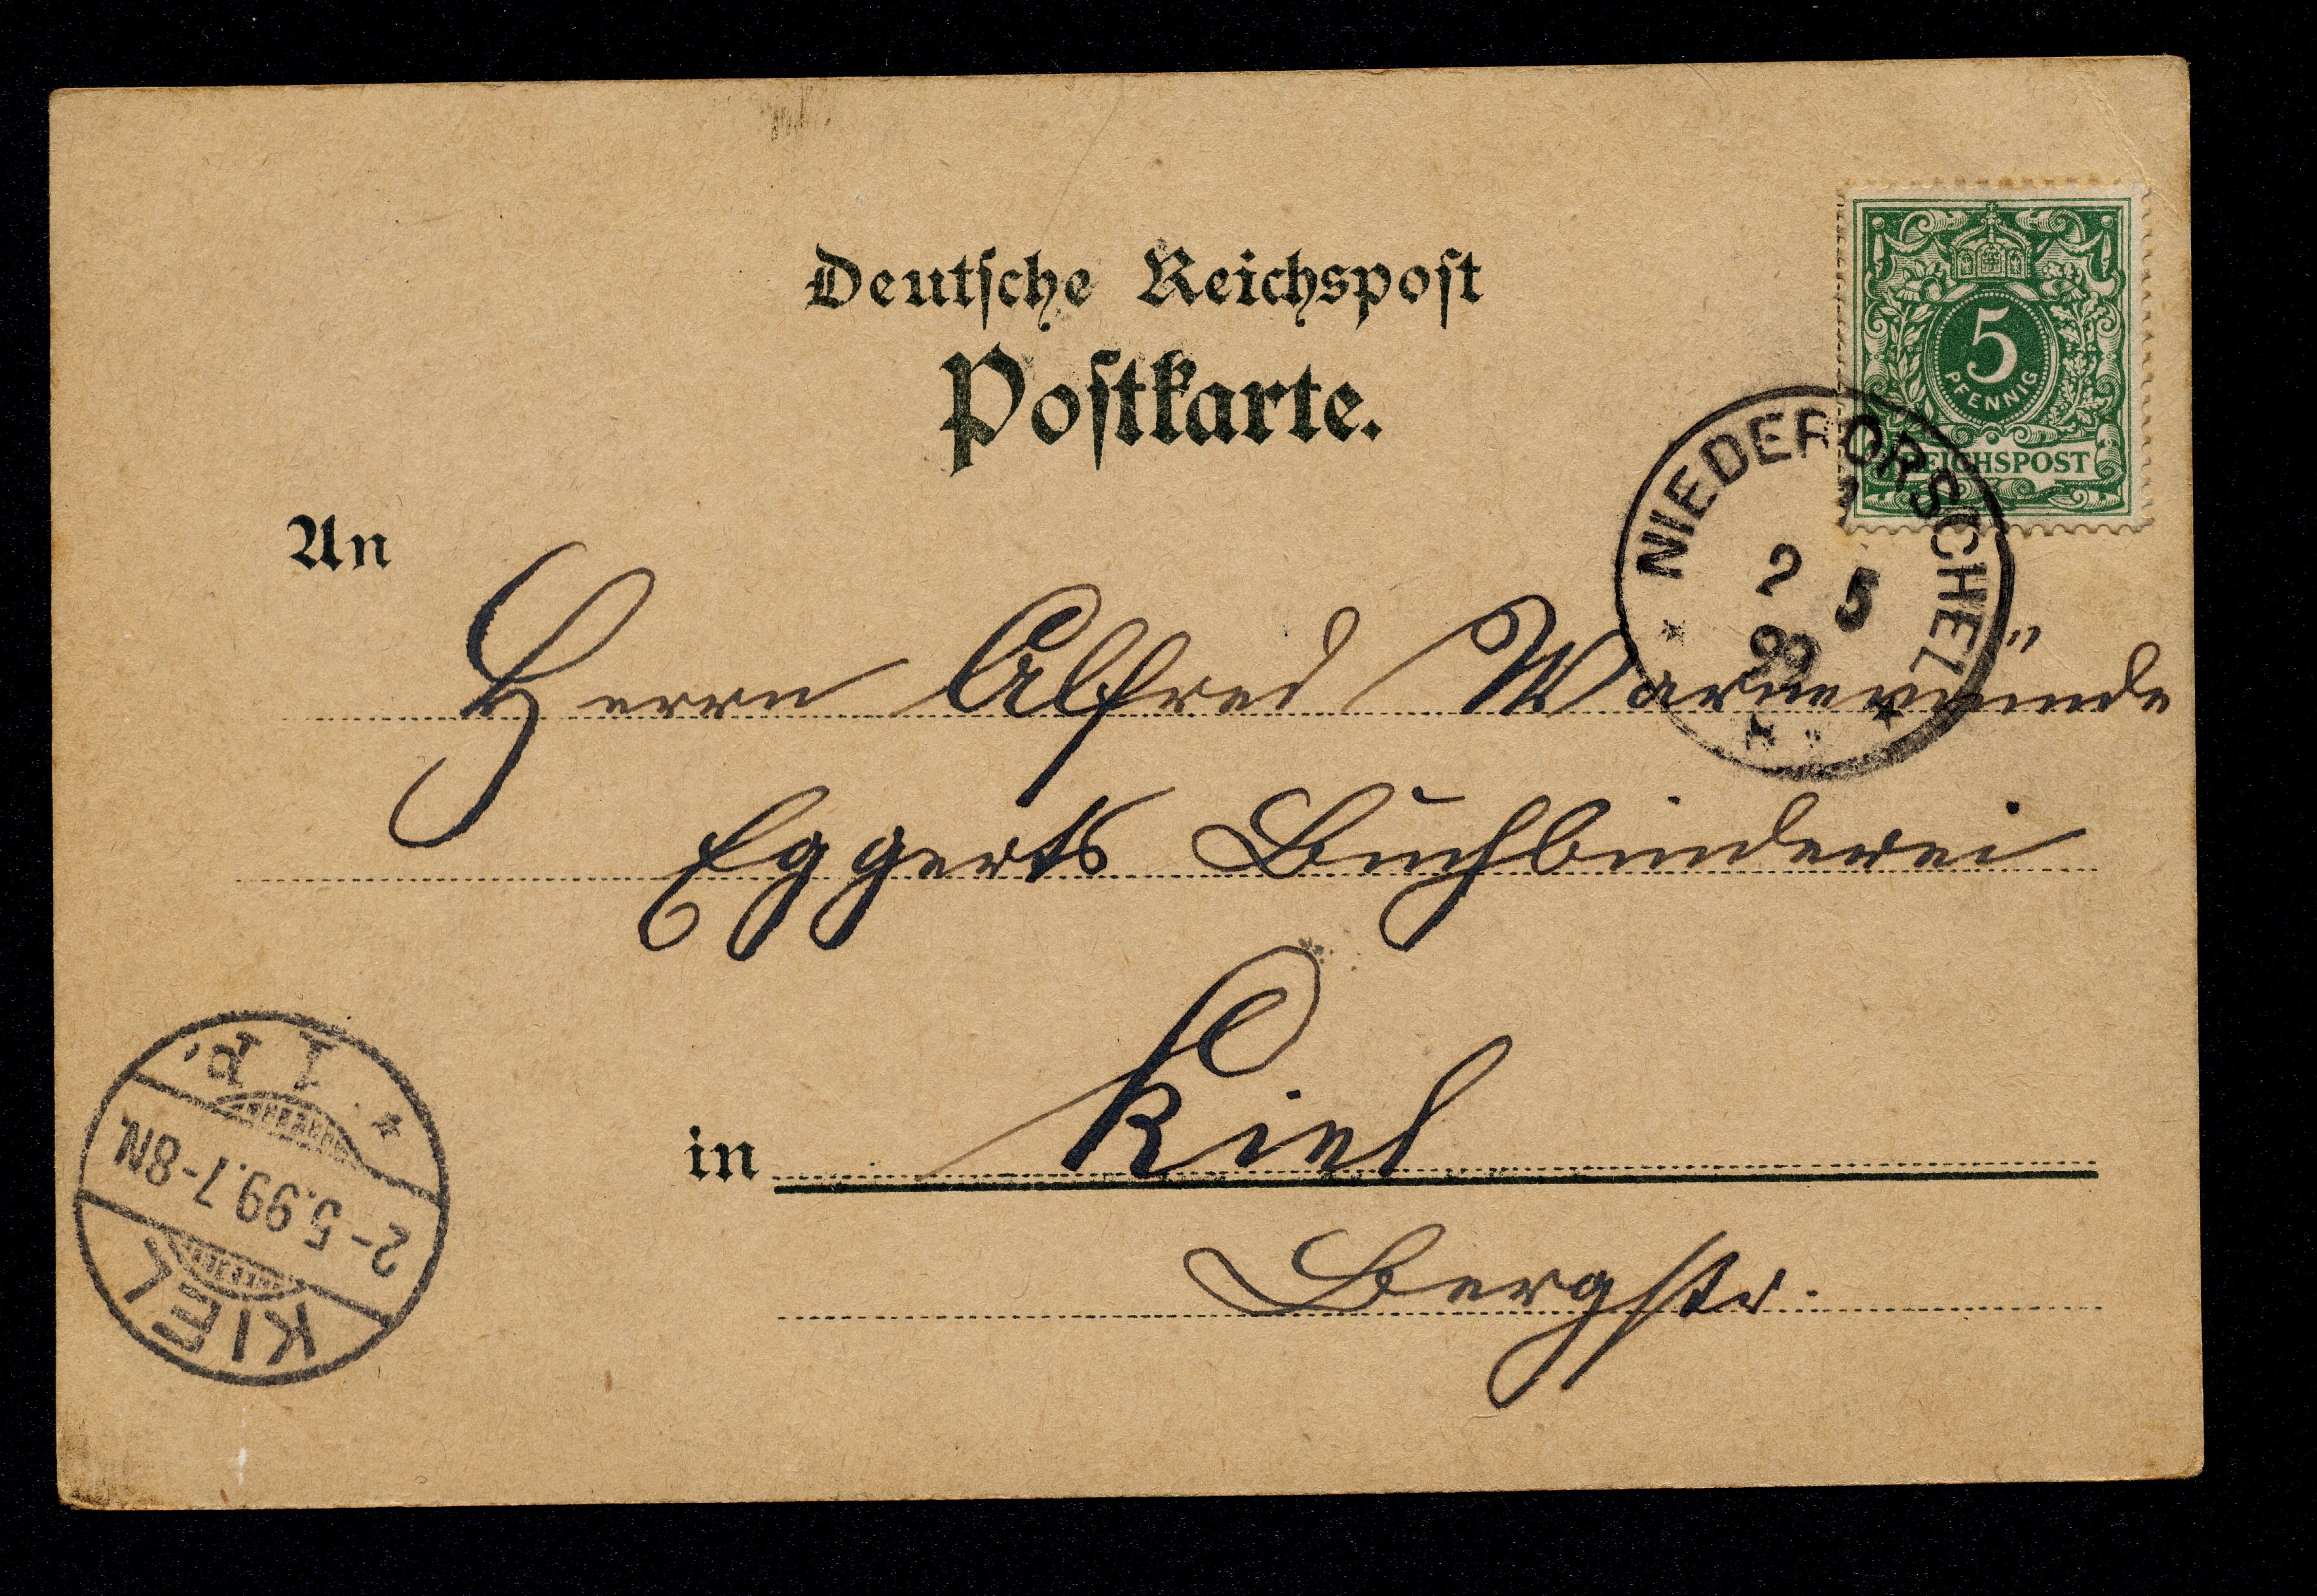 Deutsche Reichspost
Postkarte.
5
PFENNIG
REICHSPOST
NIEDERORSCHEL
2 5
99
An
Herrn Alfred Warnemünde
Eggerts Buchbinderei
in Kiel
Bergstr.
* I P.
2-5.99.7-8N.
KIEL